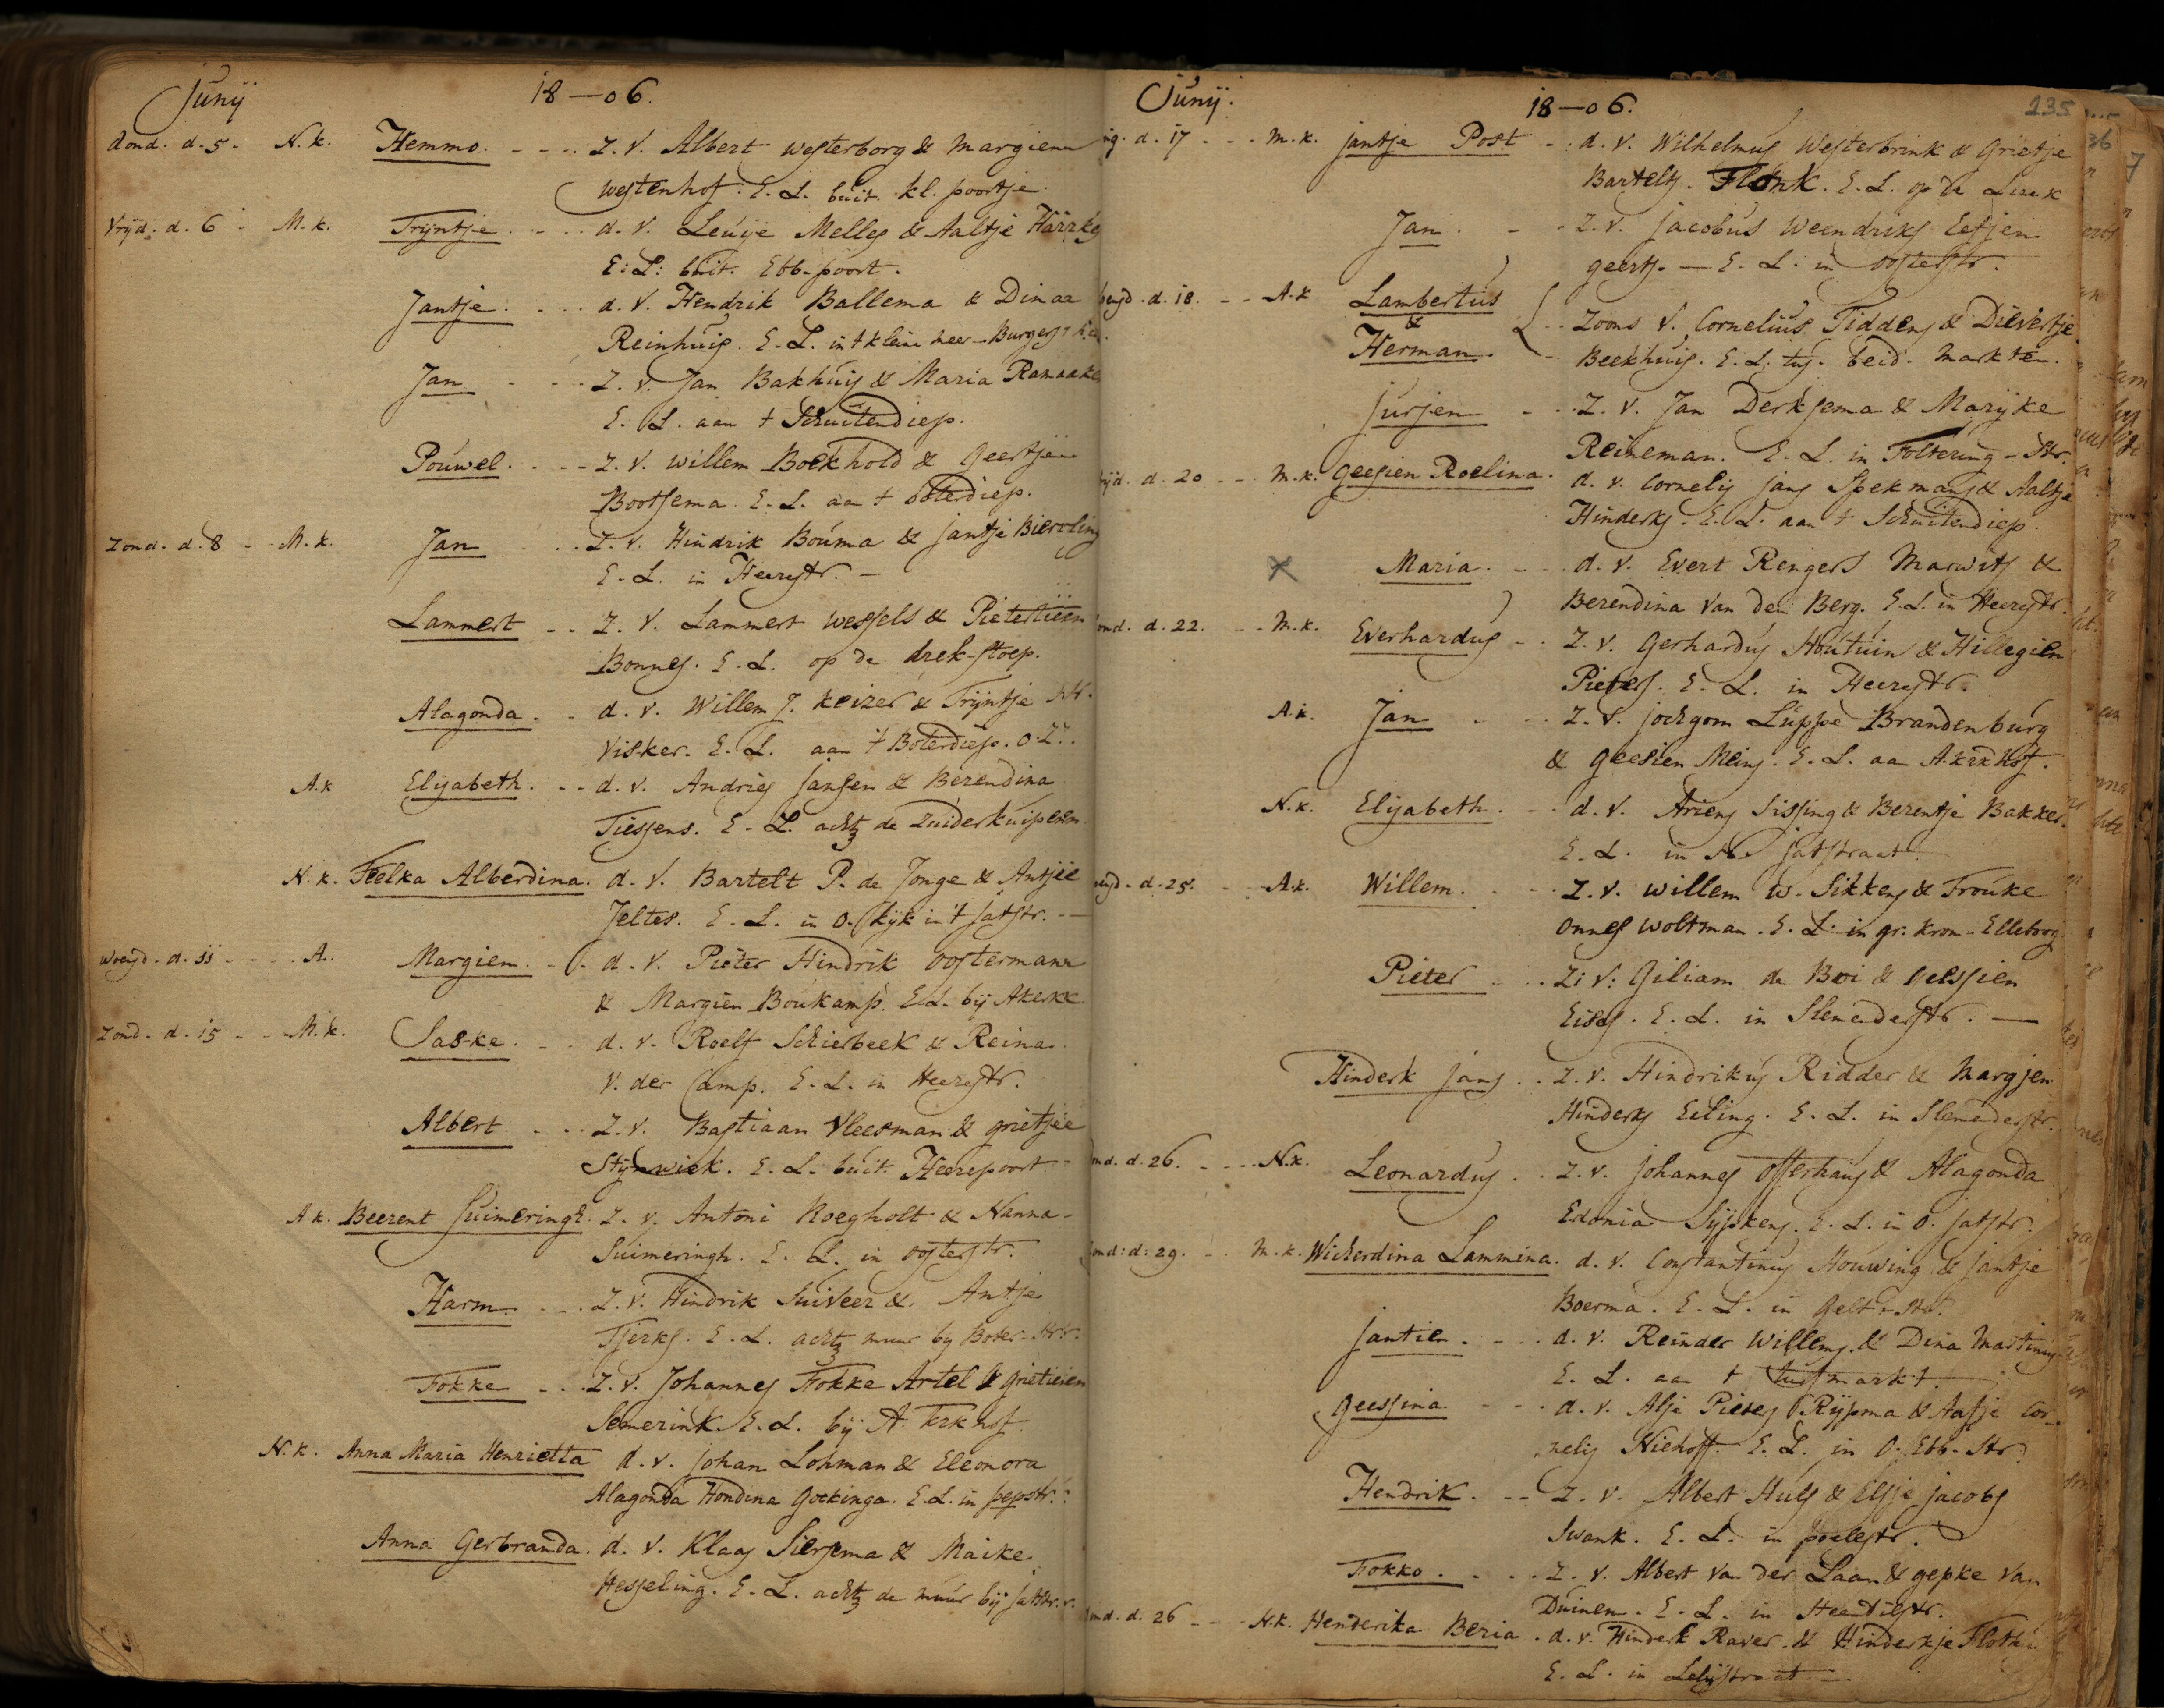 Junij 18-06.
dond. d. 5. N.k. Hemmo. Z. v. Albert Westerborg & Margien
Westenhof. E. L. buit. kl. poortje.
Vrijd. d. 6 M.k. Trijntje. d. v. Leuije Melles & Aaltje
E: L: buit. Ebb-poort.
Jantje. d. v. Hendrik Ballema & Dinaa
Reinhuis. E. L. in t kleine
Jan Z. v. Jan Bakhuis & Maria
E. L. aan t Schuitendiep.
Pouwel. Z. v. Willem Boekhold & Geertjen
Bootsema. E. L. aa t boterdiep.
Zond. d. 8 M.k. Jan Z. v. Hindrik Bouma & Jantje
E. L. in Heerestr.
Lammert Z. v. Lammert Wessels & Pietertien
Bonnes. E. L. op de drek-stoep.
Alagonda. d. v. Willem J. Keizer & Trijntje
Visker. E. L. aan 't Boterdiep. O. Z.
A.k Elisabeth. d. v. Andries Jansen & Berendina
Tiessens. E. L. acht de Zuiderkuipen
N.k. Feelka Alberdina. d. v. Bartelt P. de Jonge & Antjee
Jeltes. E. L. in O. kijk in 't Jatstr.
Woensd. d. 11 A. Margien. d. v. Pieter Hindrik Oostermann
& Margien Boukamp. E. L. bij Akerk
Zond. d. 15 M.k. Saske. d. v. Roelf Schierbeek & Reina
V. der Camp. E. L. in Heerestr.
Albert Z. v. Bastiaan Vleesman & Grietjee
Stijnwiek. E. L. buit. Heerepoort
A k. Beerent Suimeringh. Z. v. Antoni Koegholt & Nanna
Suimeringh. E. L. in Oosterstr.
Harm. Z. v. Hindrik Suiveer & Antje
Tjerks. E. L. acht muur by Boter-str.
Fokke Z. v. Johannes Fokke Artel & Grietien
Semerink. E. L. bij A. kerkhof.
N.k. Anna Maria Henrietta d. v. Johan Lohman & Eleonora
Alagonda Hondina Gockinga. E. L. in pepstr.
Anna Gerbranda. d. v. Klaas Siersema & Maike
Hesseling. E. L. acht de muur bij Jatstr.
Junij. 18-06. 135
d. 17 M.k. Jantje Post d. v. Wilhelmus Westerbrink & Grietje
Bartels. Flonk. E. L. op de
Jan. Z. v. Jacobus Weendriks Eefjen
geerts. E. L. in Oosterstr.
d. 18. A.k Lambertus
&
Herman. Zoons v. Cornelius Tiddens & Dievertje
Beekhuis. E. L. tus. beid. markte.
Jurjen Z. v. Jan Derksema & Marijke
Reineman. E. L. in Foltering-Str.
d. 20 M.k. Geesien Roelina. d. v. Cornelis Jans Spekmans & Aaltje
Hinderks. E. L. aan t Schuitendiep.
Maria. d. v. Evert Ringers Marwits &
Berendina van den Berg. E. L. in Heerestr.
d. 22. M.k. Everhardus Z. v. Gerhardus Houtuin & Hillegien
Pieters. E. L. in Heerestr.
A.k. Jan Z. v. Jochgom Luppe Brandenburg
& Geesien Meins. E. L. aa A.kerkhof.
N.k. Elisabeth. d. v. Ariens Sissing & Berentje Bakker.
E. L. in N. Jatstraat.
d. 25. A.k. Willem. Z. v. Willem W. Sikkens & Frouke
Onnes Woltman. E. L. in gr. Krom-Elleboog
Pieter Z: v: Giliam de Boi & Geessien
Eises. E. L. in Slemederstr.
Hinderk Jans Z. v. Hindrikus Ridder & Margjen
Hinderks Eiling. E. L. in Slemederstr.
d. 26. N.k. Leonardus Z. v. Johannes Offerhaus & Alagonda
Edonia Sijpkens. E. L. in O. Jatstr.
d: 29. M.k. Wicherdina Lammina. d. v. Constantinus Houwing & Jantje
Boerma. E. L. in Gelt-str.
Jantien. d. v. Reinder Willems & Dina Martinus
E. L. aa t turfmarkt
Geessina d. v. Alje Pieters Rijpma & Aafje Cor-
nelis Niehoff. E. L. in O. Ebb-Str.
Hendrik. Z. v. Albert Huls & Elsje Jacobs
Swank. E. L. in poelestr.
Fokko. Z. v. Albert van der Laan & Gepke van
Duinen. E. L. in Steentilstr.
d. 26 N.k. Henderika Beria. d. v. Hinderk Raver & Hinderkje
E. L. in Leliestraat.